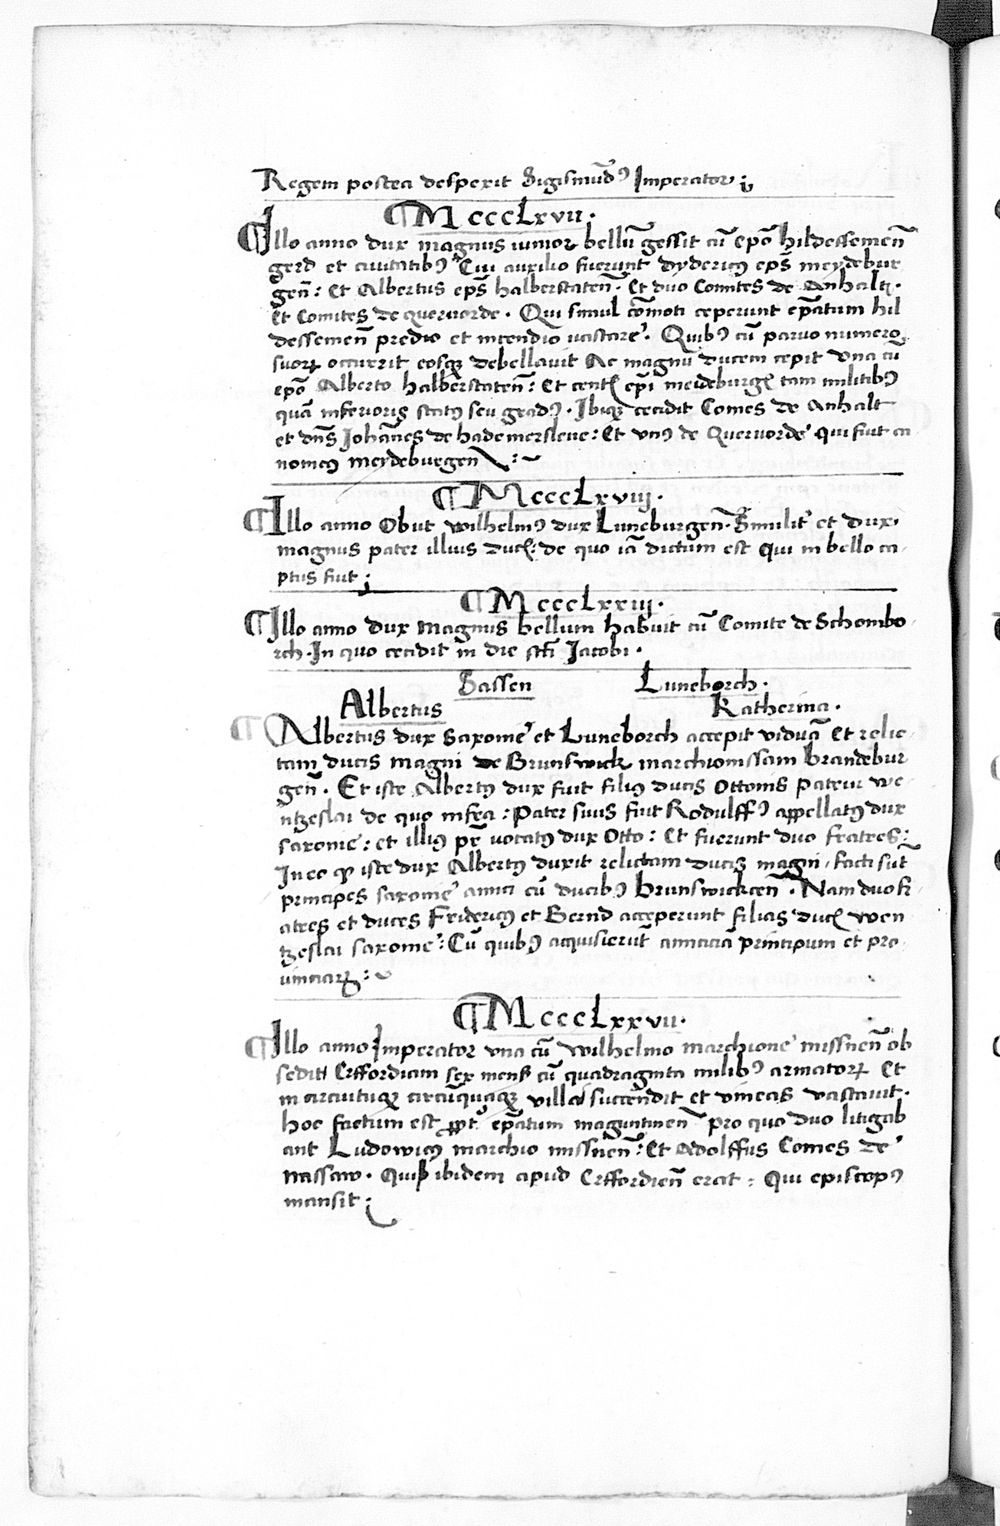 Regem postea desperit Sigismūdꝰ Imperator ;
¶ M ccccLxvii .
¶ Illo anno dux magnus iunior bellū gessit cū epō hildessemen̄
gerd et ciuitatibꝰ Cui auxilio fuerunt dydericꝰ ep̄s meydebur
gen̄ : Et Albertus ep̄s halberstaten̄ . Et duo Comites de Anhalt .
Et Comites de queruorde . Qui simul cōmoti ceperunt ep̄atum hil
dessemen̄ predio et incendio uastare . Quibꝰ cū paruo numero
suorꝝ occurrit eosqꝫ debellauit Ac magnū ducem cepit vna cū
epō Alberto halberstaten̄ : Et centꝭ ep̄i meideburgꝭ tam militibꝰ
quā inferioris statꝰ seu gradꝰ . Ibiqꝫ cecidit Comes de Anhalt
et dn̄s Johānes de hademersleue : Et vnꝰ de Queruorde qui fuit ca
nonicꝰ meydeburgen :
¶ M cccLxviij .
¶ Illo anno Obiit wilhelmꝰ dux Luneburgen̄ . Similit' et dux
magnus pater illius ducꝭ : de quo iā dictum est qui in bello ca
ptus fuit ;
¶ M cccLxxiij .
¶ Illo anno dux magnus bellum habuit cū Comite de Schombo
rch . In quo cecidit in die scti Jacobi .
Sassen Luneborch .
Albertus Katherina .
¶ Albertus dux Saxonie et Luneborch accepit viduā Et relic
tam ducis magni de Brunswick marchionissam brandebur
gen̄ . Et iste Albertꝰ dux fuit filiꝰ ducis Ottonis patrui we
ntzeslai de quo infra : Pater suus fuit Rodulffꝰ appellatꝰ dux
saxonie : et illiꝰ pr̄ vocatꝰ dux Otto : Et fuerunt duo fratres :
In eo qꝫ iste dux Albertꝰ duxit relictam ducis magni . facti sūt
principes saxonie amici cū ducibꝰ brunswickcen̄ . Nam duo fr
atres et duces Fridericꝰ et Bernd acceperunt filias ducꝭ wen
tzeslai saxonie : Cū quibꝰ acquisierūt amiciciā principum et pro
uinciarꝝ :
¶ M cccLxxvii .
¶ Illo anno Imperator vna cū wilhelmo marchione missnen̄ ob
sedit Erffordiam sex mensꝭ cū quadraginta milibꝰ armatorꝝ Et
in circuituqꝫ circūquaqꝫ villas succendit et vineas vastauit .
hoc factum est ꝓpt' ep̄atum maguntinen̄ pro quo duo litigab
ant Ludowicꝰ marchio missnen̄ : Et Adolffus Comes de
nassaw . Quiꝑ ibidem apud Erffordien̄ erat : Qui episcopꝰ
mansit ;